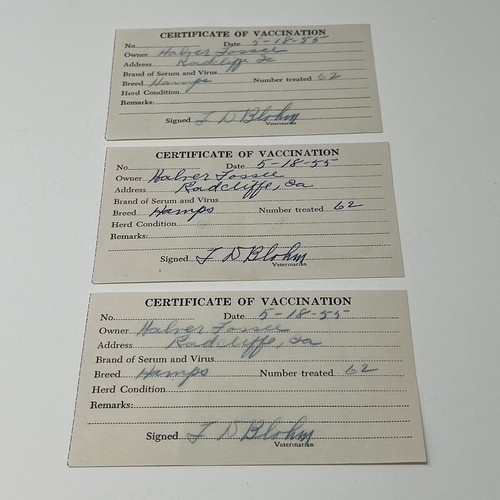 CERTIFICATE OF VACCINATION
No. Date 5-18-55
Owner Halver Tossee
Address Radcliffe, Ia
Brand of Serum and Virus
Breed Hamps Number treated 62
Herd Condition
Remarks:
Signed T D Blohm
Veterinarian
CERTIFICATE OF VACCINATION
No. Date 5-18-55
Owner Halver Tossee
Address Radcliffe, Ia
Brand of Serum and Virus
Breed Hamps Number treated 62
Herd Condition
Remarks:
Signed T D Blohm
Veterinarian
CERTIFICATE OF VACCINATION
No. Date 5-18-55
Owner Halver Tossee
Address Radcliffe, Ia
Brand of Serum and Virus
Breed Hamps Number treated 62
Herd Condition
Remarks:
Signed T D Blohm
Veterinarian